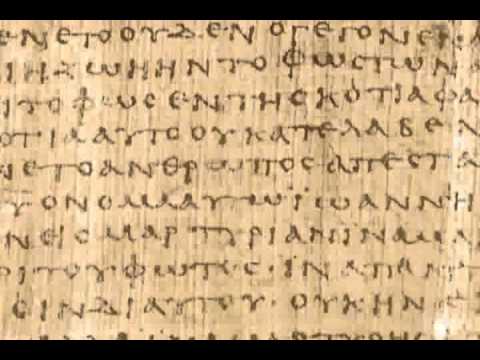 ΕΝΕΤΟΟΥΔΕΝΟΓΕΓΟΝΕΝ
ΖΩΗΗΝΤΟΦΩΣΤΩΝ
ΤΟΦΩϹΕΝΤΗϹΚΟΤΙΑΦΑ
ΟΤΙΑΑΥΤΟΟΥΚΑΤΕΛΑΒΕΝ
ΝΕΤΟΑΝΘΡΩΠΟϹΑΠΕϹΤΑ
ΥΟΝΟΜΑΑΥΤΩΪΩΑΝΝΗ
ΝΕΙϹΜΑΡΤΥΡΙΑΝΙΝΑΜΑ
ΡΙΤΟΥΦΩΤΟϹ·ΙΝΑΠΑΝΤ
ϹΙΝΔΙΑΥΤΟΥ·ΟΥΚΗΝΕ